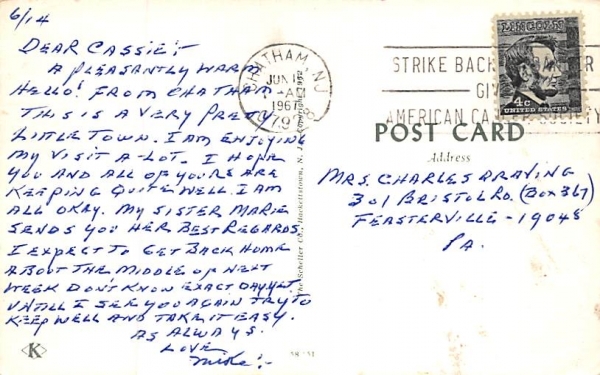 6/14
DEAR CASSIE:-
A PLEASANTLY WARM
HELLO! FROM CHATHAM
THIS IS A VERY PRETTY
LITTLE TOWN. I AM ENJOYING
MY VISIT A-LOT. I HOPE
YOU AND ALL OF YOURS ARE
KEEPING QUITE WELL. I AM
ALL OKAY. MY SISTER MARIE
SENDS YOU HER BEST REGARDS
I EXPECT TO GET BACK HOME
ABOUT THE MIDDLE OF NEXT
WEEK DON'T KNOW EXACT DAY YET
UNTILL I SEE YOU AGAIN TRY TO
KEEP WELL AND TAKE IT EASY.
AS ALWAYS.
LOVE
MIKE:-
K
CHATHAM, NJ
JUN
1967
07928
The Scheller Co., Hackettstown, N. J.
LINCOLN
4c
UNITED STATES
STRIKE BACK
AMERICAN CANCER SOCIETY
POST CARD
Address
MRS. CHARLES
301 BRISTOL RD. (BOX 367)
FEASTERVILLE - 19048
PA.